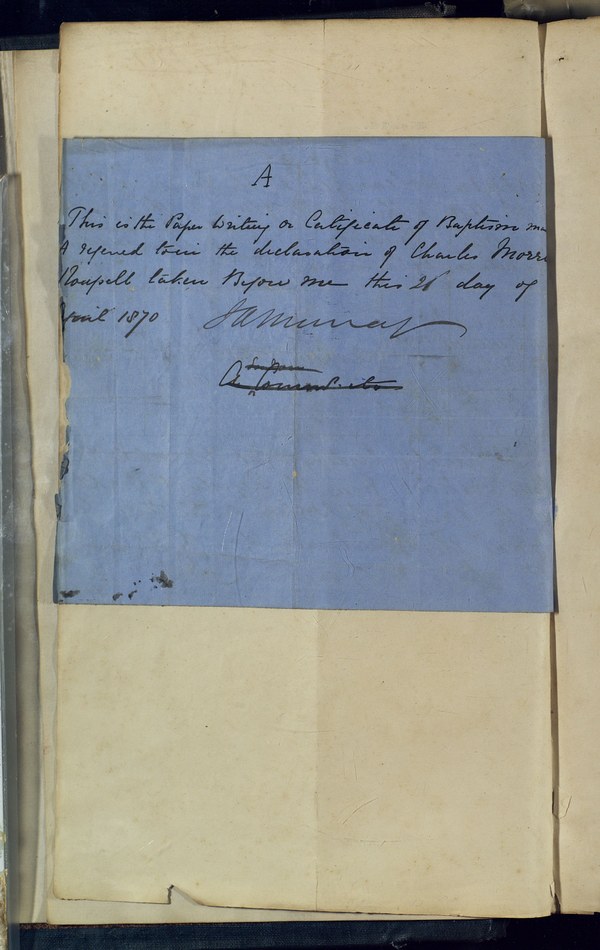 A
This is the Paper Writing or Certificate of Baptism
A referred to in the declaration of Charles Morr
Roupell taken Before me this 26 day of
1870